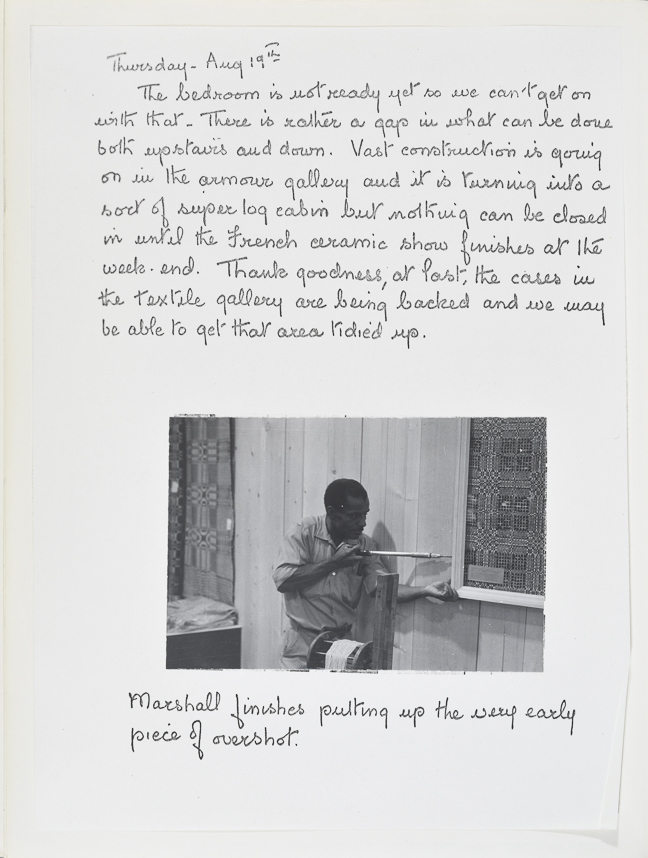 Thursday - Aug 19th
The bedroom is not ready yet so we can't get on
with that - There is rather a gap in what can be done
both upstairs and down. Vast construction is going
on in the armour gallery and it is turning into a
sort of super log cabin but nothing can be closed
in until the French ceramic show finishes at the
week-end. Thank goodness, at last, the cases in
the textile gallery are being backed and we may
be able to get that area tidied up.
Marshall finishes putting up the very early
piece of overshot.